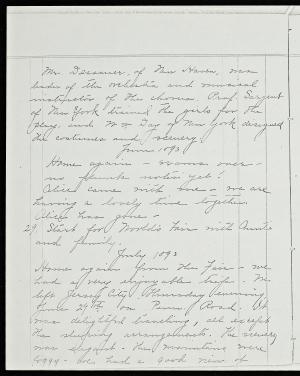 Mr. Dessauer, of New Haven, was
leader of the orchestra and musical
instructor of the chorus. Prof. Sargent
of New York trained the girls for the
play, and Mr. Day of New York designed
the costumes and scenery.
June 1893
Home again - exams over -
no flunk notes yet!
Alice came with me - we are
having a lovely time together.
Alice has gone -
29. Start for World's Fair with Aunt
and family.
July 1893
Home again from the Fair - we
had a very enjoyable trip. We
left Jersey City, Thursday evening
June 29th on Penn Road. It
was delightful travelling, all except
the sleeping arrangements. The scenery
was elegant - the mountains were
foggy - we had a good view of